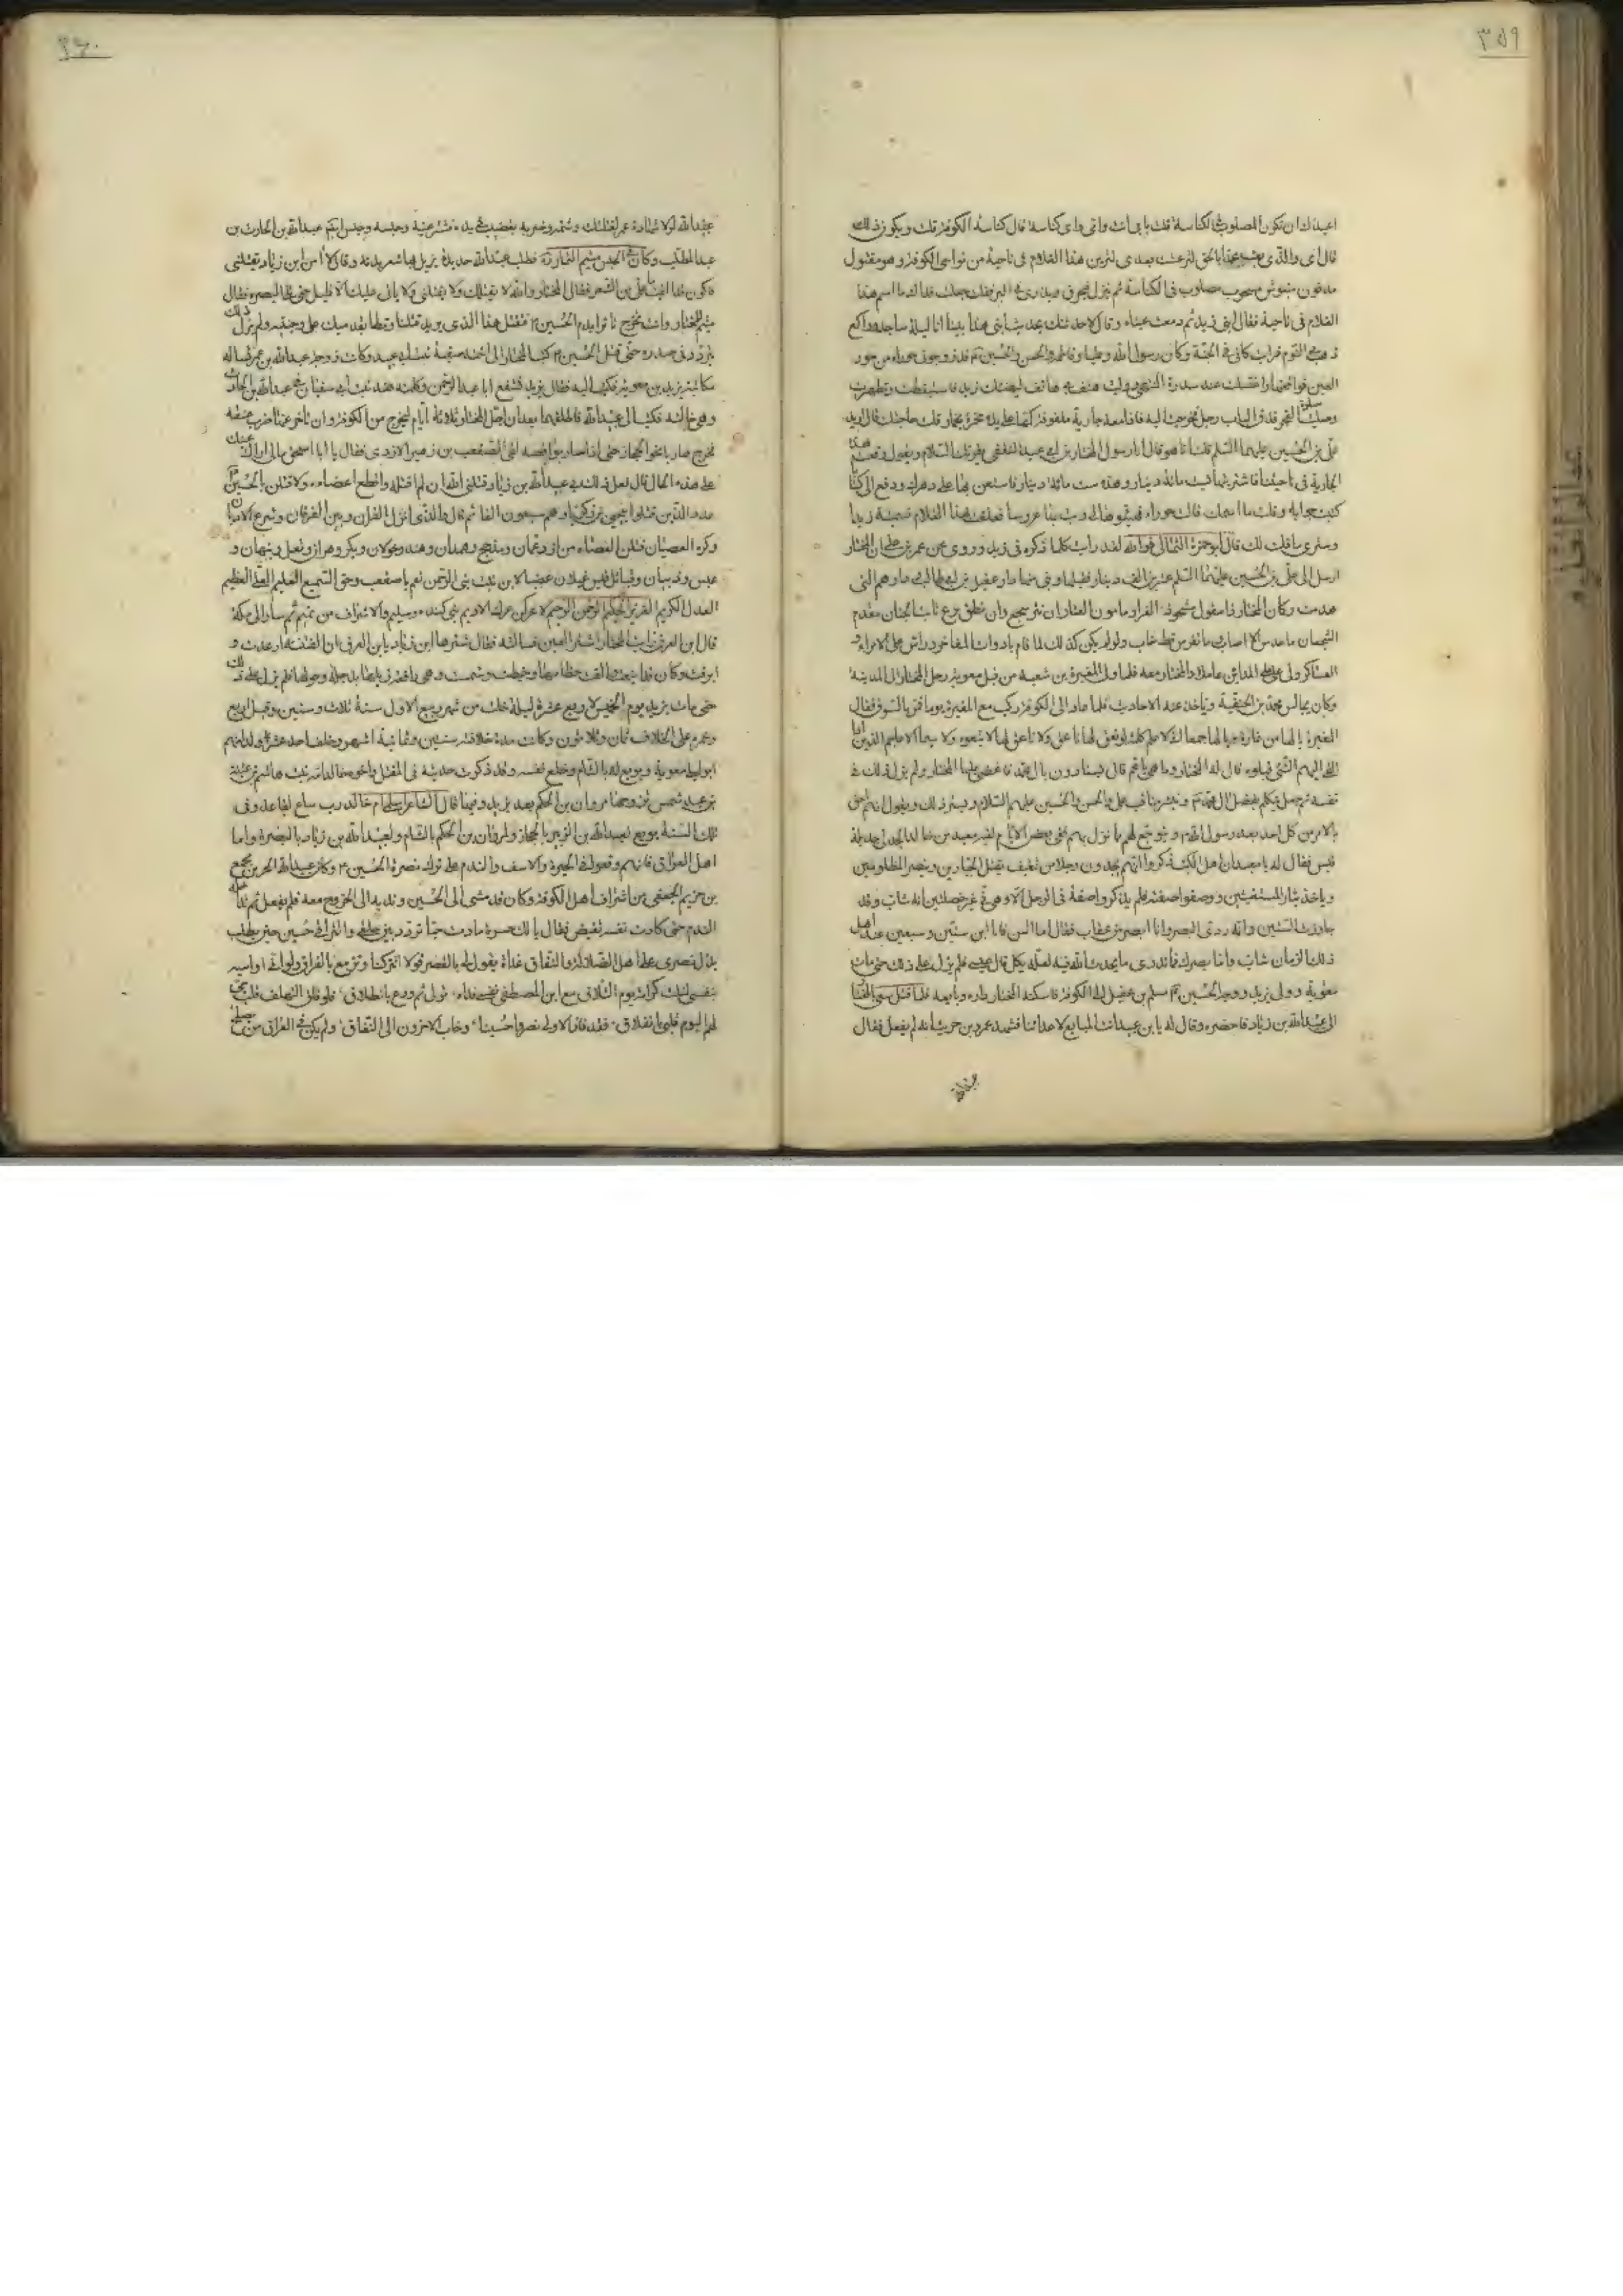 ٣٥٩
اعيذك ان تكون المصلوب في الكناسة قلت بابي انت وامي واي كناسة قال كناسة الكوفة قلت ويكون ذلك
قال اي والذي بعث محمدا بالحق لئن عشت بعدي لترين هذا الغلام في ناحية من نواحي الكوفة وهو مقتول
مدفون منبوش مسحوب مصلوب في الكناسة ثم ينزل فيحرق ويذري في البر فقلت جعلت فداك ما اسم هذا
الغلام في ناحية فقال ابني زيد ثم دمعت عيناه وقال لاحدثنك بحديث ابني هذا بينا انا ليلة ساجد وراكع
ذهب بي النوم فرايت كاني في الجنة وكان رسول الله وعليا وفاطمة والحسن والحسين قد زوجوني حوراء من حور
العين فواقعتها واغتسلت عند سدرة المنتهى ووليت هتف بي هاتف ليهنئك زيد فاستيقظت وتطهرت
وصليت صلوة الفجر فدق الباب رجل فخرجت اليه فاذا معه جارية ملفوف كمها على يده مخمرة بخمار قلت حاجتك قال اريد
علي بن الحسين عليهما السلم قلت انا هو قال انا رسول المختار بن ابي عبيد الثقفي يقرئك السلام ويقول وقعت هذه
الجارية في ناحيتنا فاشتريتها بست مائة دينار وهذه ست مائة دينار فاستعن بها على دهرك ودفع الي كتابا
كتبت جوابه وقلت ما اسمك قالت حوراء فهيئوها لي وبت بها عروسا فعلقت بهذا الغلام فسميته زيدا
وسترى ما قلت لك قال ابو حمزة الثمالي فوالله لقد رايت كلما ذكره في زيد وروي عن عمر بن علي ان المختار
ارسل الى علي بن الحسين عليهما السلم عشرين الف دينار فقبلها وبنى منها دار عقيل بن ابي طالب ودارهم التي
هدمت وكان المختار ذا مقول
وكان يجالس محمد بن الحنفية وياخذ عنه الاحاديث فلما عاد الى الكوفة ركب مع المغيرة يوما فمر بالسوق فقال
المغيرة يا لها من غارة ويا له جمعا اني لاعلم كلمة لو نعق لها ناعق ولا ناعق لها لاتبعوه ولا سيما الاعاجم الذين اذا
القي اليهم الشئ قبلوه قال له المختار وما هي يا عم قال يستادون بال محمد فاغضى عليها المختار ولم يزل ذلك في
نفسه ثم جعل يتكلم بفضل ال محمد وينشر مناقب علي والحسن والحسين عليهم السلام ويسير ذلك ويقول انهم احق
بالامر من كل احد بعد رسول الله ويتوجع لهم مما نزل بهم ففي بعض الايام لقيه معبد بن خالد الجدلي جديلة
قيس فقال له يا معبد ان اهل الكتب ذكروا انهم يجدون رجلا من ثقيف يقتل الجبارين وينصر المظلومين
وياخذ بثار المستضعفين ووصفوا صفته فلم يذكروا صفة في الرجل الا وهي في غير خصلتين انه شاب وقد
جاوزت الستين وانه ردي البصر وانا ابصر من عقاب فقال اما السن فان ابن ستين وسبعين عند اهل
ذلك الزمان شاب واما بصرك فما تدري ما يحدث الله فيه لعله يكل قال عسى فلم يزل على ذلك حتى مات
معوية وولى يزيد ووجه الحسين مسلم بن عقيل الى الكوفة فاسكنه المختار داره وبايعه فلما قتل مسلم سعي بالمختار
الى عبيد الله بن زياد فاحضره وقال له يا بن عبيد انت المبايع لاعدائنا فشهد عمرو بن حريث انه لم يفعل فقال
عبيد الله
٣٦٠
عبيد الله لولا شهادة عمرو لقتلتك وشتمه وضربه بقضيب في يده فشتر عينه وحبسه وحبس ايضا عبد الله بن الحارث بن
عبد المطلب وكان في الحبس ميثم التمار ره فطلب عبد الله حديدة يزيل بها شعر بدنه وقال لا امن ابن زياد يقتلني
فاكون قد القيت ما علي من الشعر فقال المختار والله لا يقتلك ولا يقتلني ولا ياتي عليك الا قليل حتى تلي البصرة فقال
ميثم للمختار وانت تخرج ثائرا بدم الحسين فتقتل هذا الذي يريد قتلنا وتطا بقدميك على وجنتيه ولم يزل ذلك
يتردد في صدره حتى قتل الحسين كتب المختار الى اخته صفية بنت ابي عبيد وكانت زوجة عبد الله بن عمر تساله
مكاتبة يزيد بن معوية فكتب اليه فقال يزيد نشفع ابا عبد الرحمن وكلمته هند بنت ابي سفيان في عبد الله بن الحارث
وهي خالته فكتب الى عبيد الله فاطلقهما بعد ان اجل المختار ثلاثة ايام ليخرج من الكوفة وان تاخر عنها ضرب عنقه
فخرج هاربا نحو الحجاز حتى اذا صار بواقصة لقي الصقعب بن زهير الازدي فقال يا ابا اسحق مالي ارى عينك
على هذه الحال قال فعل بي ذلك عبيد الله بن زياد قتلني الله ان لم اقتله واقطع اعضاءه ولاقتلن بالحسين
عدد الذين قتلوا بيحيى بن زكريا وهم سبعون الفا ثم قال والذي انزل القران وبين الفرقان وشرع الاديان
وكره العصيان لاقتلن العصاة من ازد عمان ومذحج وهمدان ونهد وخولان وبكر وهزان وثعل ونبهان و
عبس وذبيان وقبائل قيس عيلان غضبا لابن بنت نبي الرحمن نعم يا صقعب وحق السميع العليم العلي العظيم
العدل الكريم العزيز الحكيم الرحمن الرحيم لاعركن عرك الاديم بني كندة وسليم والاشراف من تميم ثم سار الى مكة
قال ابن العرق رايت المختار اشتر العين فسالته فقال شترها ابن زياد يا ابن العرق ان الفتنة ارعدت و
ابرقت وكان قد اينعت والقت خطامها وخبطت وشمست وهي رافعة ذيلها
حتى مات يزيد يوم الخميس لاربع عشرة ليلة خلت من شهر ربيع الاول سنة ثلاث وستين وقيل اربع
وعمره على الخلاف ثمان وثلاثون وكانت مدة خلافته سنتين وثمانية اشهر وخلف احد عشر ولدا منهم
ابو ليلى معوية وبويع له بالشام وخلع نفسه وقد ذكرت حديثه في المقتل واخوه خالد امه بنت هاشم بن عتبة
بن عبد شمس تزوجها مروان بن الحكم بعد يزيد وفيها قال الشاعر اسلمي ام خالد رب ساع لقاعد وفي
تلك السنة بويع لعبد الله بن الزبير بالحجاز ولمروان بن الحكم بالشام ولعبيد الله بن زياد بالبصرة واما
اهل العراق فانهم وقعوا في الحيرة والاسف والندم على تركه نصرة الحسين وكان عبيد الله الحر بن مجمع
بن حزيم الجعفي من اشراف اهل الكوفة وكان قد مشى الى الحسين وندبه الى الخروج معه فلم يفعل ثم تداخله
الندم حتى كادت نفسه تفيض فقال يا لك حسرة ما دمت حيا تردد بين حلقي والتراقي حسين حين يطلب
بذل نصري على اهل الضلالة والنفاق غداة يقول لي بالقصر قولا اتتركنا وتزمع بالفراق ولو اني اواسيه
بنفسي لنلت كرامة يوم التلاق مع ابن المصطفى نفسي فداه تولى ثم ودع بانطلاق فلو فلق التلهف قلب حي
لهم اليوم قلبي بانفلاق فقد فاز الاولى نصروا حسينا وخاب الاخرون الى النفاق ولم يكن في العراق من يصلح